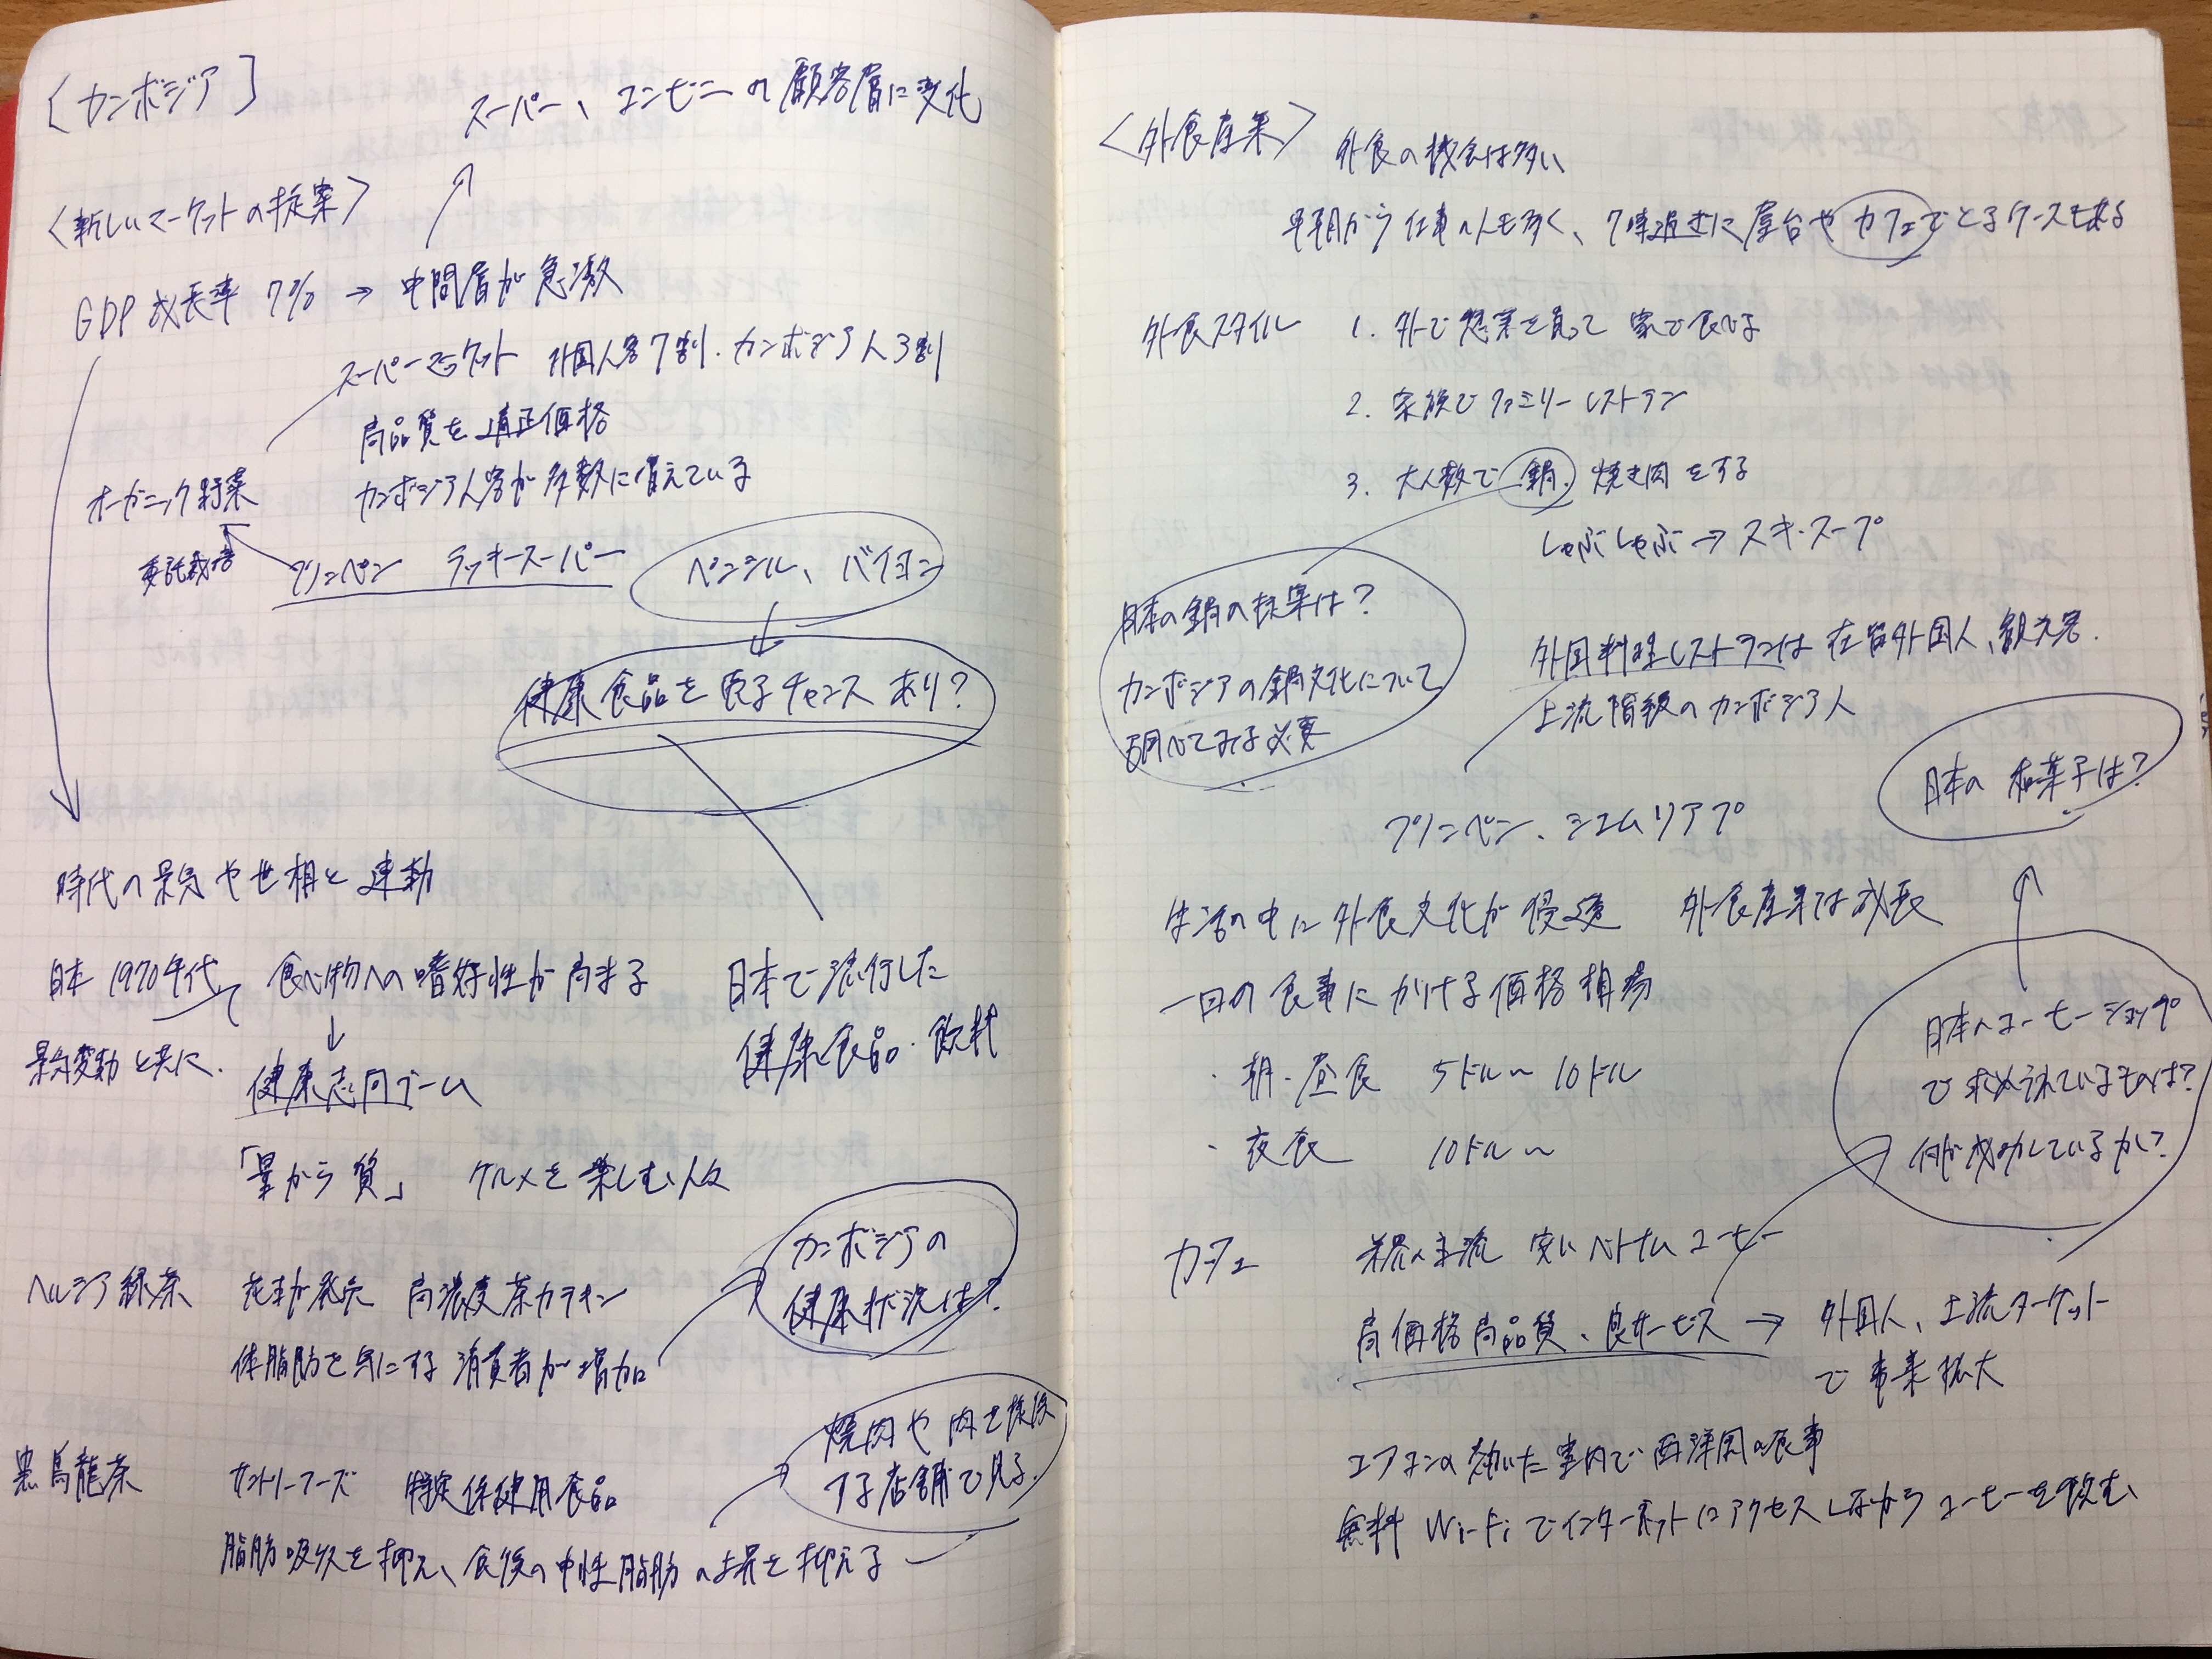 ［カンボジア］
スーパー、コンビニの顧客層に変化
＜新しいマーケットの提案＞
GDP成長率 7% → 中間層が急激
スーパーマーケット 外国人客7割・カンボジア人3割
高品質を適正価格
カンボジア人客が多数に増えている
オーガニック野菜
委託栽培
プノンペン ラッキースーパー
ペンシル、バイヨン
健康食品を売るチャンスあり？
時代の景気や世相と連動
日本 1970年代
食べ物への嗜好性が高まる
景気変動と共に、
↓
健康志向ブーム
日本で流行した
健康食品・飲料
「量から質」 グルメを楽しむ人々
カンボジアの
健康状況は？
ヘルシア緑茶 花王が発売 高濃度茶カテキン
体脂肪を気にする消費者が増加
焼肉や肉を
する店舗で見る。
黒烏龍茶 サントリーフーズ 特定保健用食品
脂肪吸収を抑え、食後の中性脂肪の上昇を抑える
＜外食産業＞ 外食の機会は多い
早朝から仕事の人も多く、7時過ぎに屋台やカフェでとるケースもある
外食スタイル 1. 外で惣菜を買って家で食べる
2. 家族でファミリーレストラン
3. 大人数で鍋、焼き肉をする
しゃぶしゃぶ→スキ・スープ
日本の鍋の提案は？
カンボジアの鍋文化について
調べてみる必要
外国料理レストランは在留外国人、観光客、
上流階級のカンボジア人
プノンペン、シェムリアプ
日本の和菓子は？
生活の中に外食文化が浸透 外食産業は成長
一日の食事にかける価格相場
・朝・昼食 5ドル〜10ドル
・夜食 10ドル〜
日本のコーヒーショップ
で求められているものは？
何が成功しているか？
カフェ 業界の主流 安いベトナムコーヒー
高価格高品質、良サービス → 外国人、上流ターゲット
で事業拡大
エアコンの効いた室内で西洋風の食事
無料Wi-Fiでインターネットにアクセスしながらコーヒーを飲む